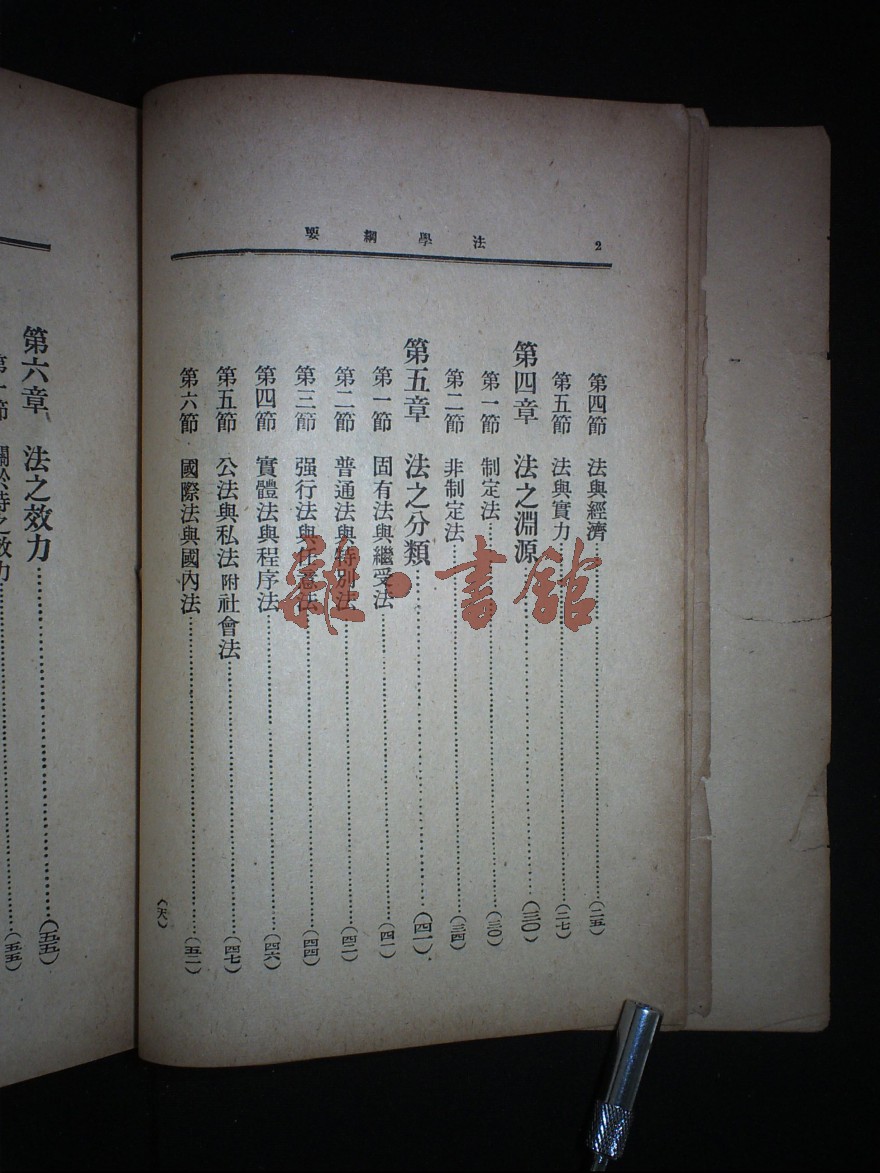 法學綱要
2
第四節 法與經濟……(二五)
第五節 法與實力……(二七)
第四章 法之淵源……(三〇)
第一節 制定法……(三〇)
第二節 非制定法……(三四)
第五章 法之分類……(四一)
第一節 固有法與繼受法……(四一)
第二節 普通法與特別法……(四二)
第三節 强行法與任意法……(四四)
第四節 實體法與程序法……(四六)
第五節 公法與私法附社會法……(四七)
第六節 國際法與國內法……(五二)
第六章 法之效力……(五五)
第一節 關於時之效力……(五五)
雜·書館